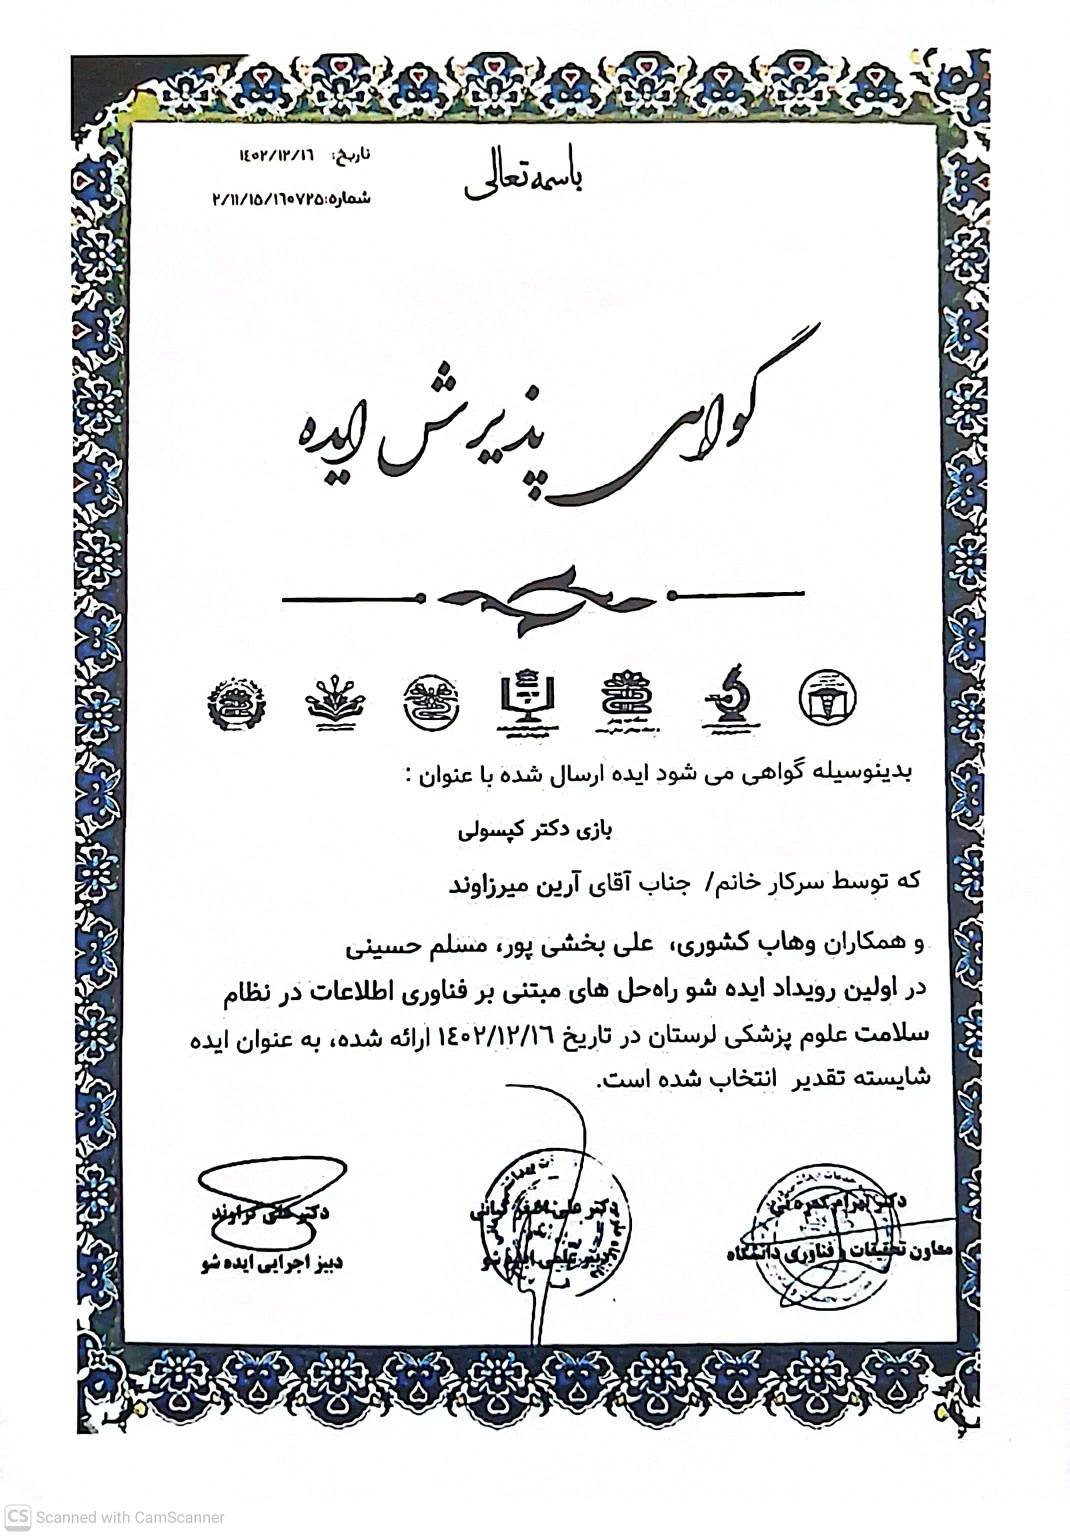 باسمه تعالی
تاریخ: ۱۴۰۲/۱۲/۱۶
شماره:۲/۱۱/۱۵/۱۶۰۷۲۵
گواهی پذیرش ایده
بدینوسیله گواهی می شود ایده ارسال شده با عنوان :
بازی دکتر کپسولی
که توسط سرکار خانم/ جناب آقای آرین میرزاوند
و همکاران وهاب کشوری، علی بخشی پور، مسلم حسینی
در اولین رویداد ایده شو راه‌حل های مبتنی بر فناوری اطلاعات در نظام
سلامت علوم پزشکی لرستان در تاریخ ۱۴۰۲/۱۲/۱۶ ارائه شده، به عنوان ایده
شایسته تقدیر انتخاب شده است.
دکتر بهرام
معاون تحقیقات و فناوری دانشگاه
دکتر علی اصغر کیانی
دبیر علمی ایده شو
دکتر علی گراوند
دبیر اجرایی ایده شو
CS Scanned with CamScanner